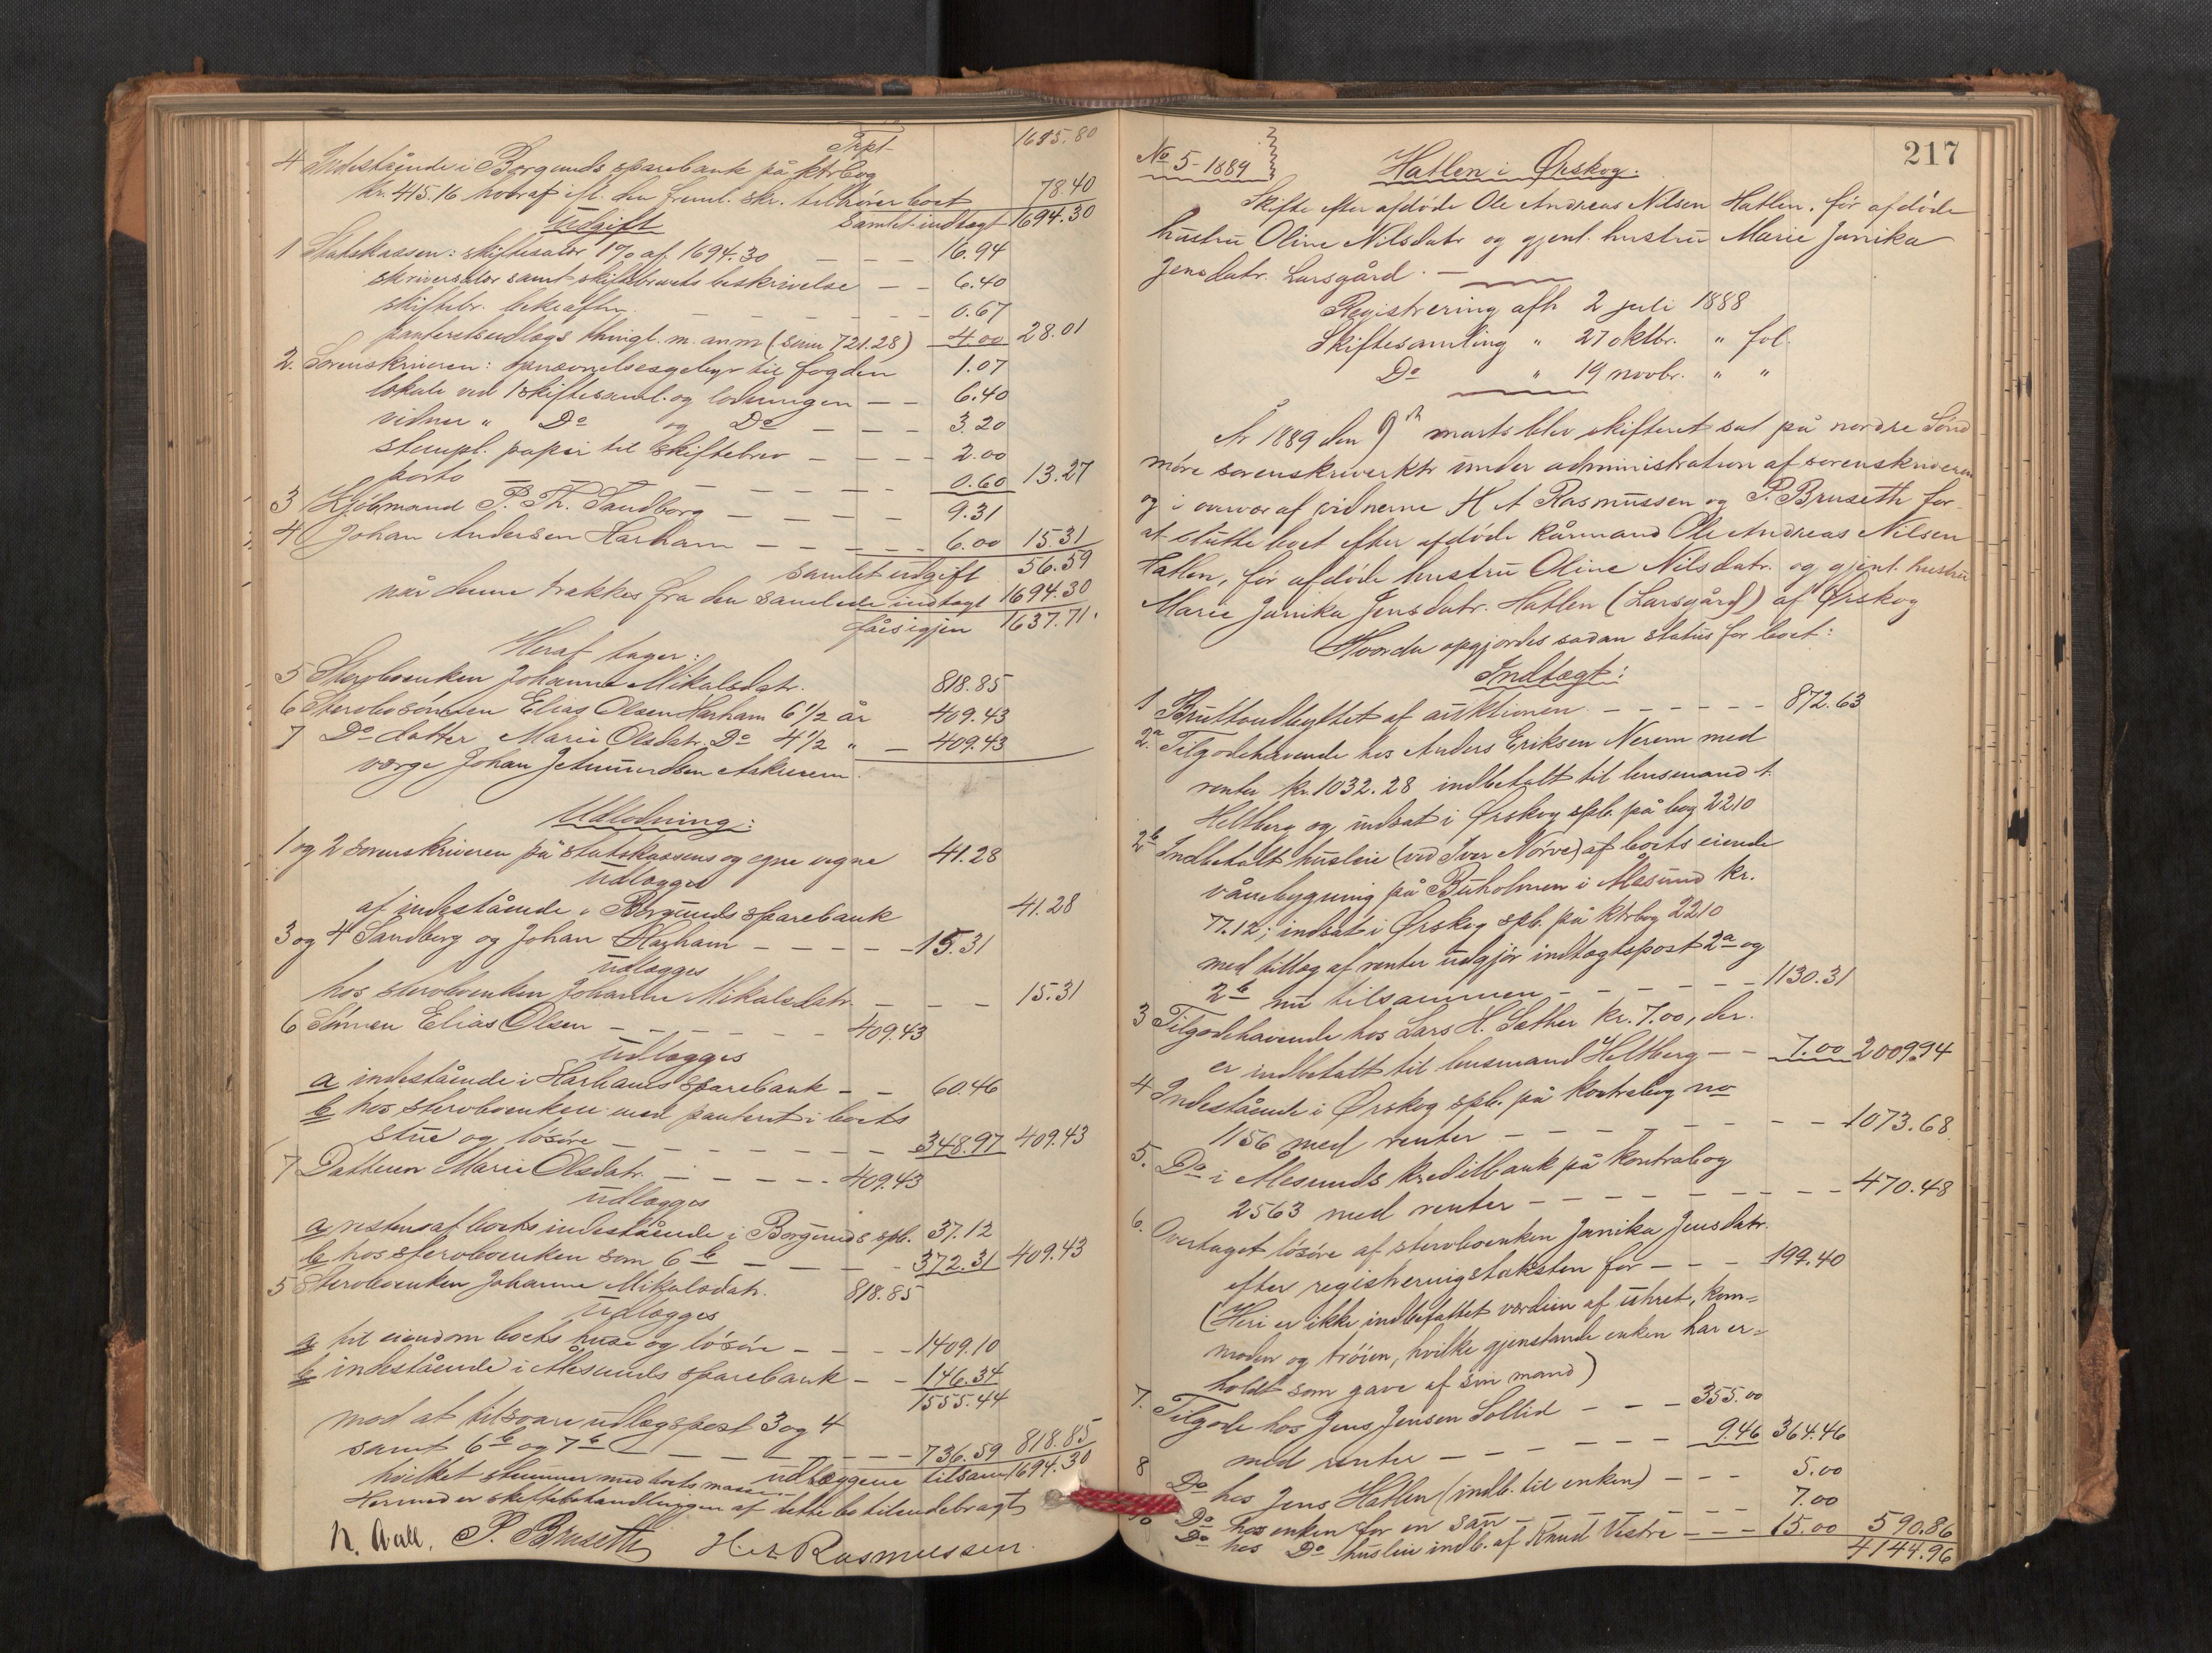 Trpt 1615.80
4 Indestående i Borgunds sparebank på ktrbog
kr. 415.16 hvoraf ifl. den freml. skr. tilhører boet 78.40
samlet indtægt 1694.30
Udgift
1 Statskassen: skiftesalær 1% af 1694.30 — — — 16.94
skriversalær samt skiftebrevets beskrivelse — — 6.40
skiftebr. bekræftn. — — — 0.67
panteretsudlægs thingl. m. anm (sum 721.28) 4.00 28.01
2. Sorenskriveren: opnævnelsesgebyr til fogden 1.07
lokale ved 1 skiftesaml. og lodningen — — 6.40
vidner " Do og Do — — — 3.20
stempl. papir til skiftebrev — — — 2.00
porto — — — — 0.60 13.27
3 Kjøbmand P. Th. Sandborg — — — — 9.31
4 Johan Andersen Harham — — — — 6.00 15.31
samlet udgift 56.59
når denne trækkes fra den samlede indtægt 1694.30
fåes igjen 1637.71.
Heraf tager:
5 Stervboenken Johanne Mikalsdatr. 818.85
6 Stervbosønnen Elias Olsen Harham 6 1/2 år 409.43
7 Do datter Marie Olsdatr. Do 4 1/2 " — 409.43
værge Johan
Udlodning:
1 og 2 sorenskriveren på statskassens og egne vegne 41.28
udlægges
af indestående i Borgunds sparebank 41.28
3 og 4 Sandberg og Johan Harham — — — — 15.31
udlægges
hos stervboenken Johanne Mikalsdatr. — — — 15.31
6 Sønnen Elias Olsen — — — — 409.43
udlægges
a indestående i Harhams sparebank — — 60.46
b hos stervboenken med panteret i boets
stue og løsøre — — — 348.97 409.43
7 Datteren Marie Olsdatr. — — — — 409.43
udlægges
a resten af boets indestående i Borgunds spb. 37.12
b hos stervboenken som 6 b — — — 372.31 409.43
5 Stervboenken Johanne Mikalsdatr. 818.85
udlægges
a til eiendom boets huse og løsøre — — — 1409.10
b indestående i Ålesunds sparebank — — 146.34
1555.44
mod at tilsvare udlægspost 3 og 4
samt 6 b og 7 b — — — — 736.59 818.85
udlæggene tilsam 1694.30
hvilket stemmer med boets masse
Hermed er skiftebehandlingen af dette bo tilendebragt
N. Aall. P. Bruseth H. A. Rasmussen.
217
No 5 - 1889
Hatlen i Ørskog.
Skifte efter afdøde Ole Andreas Nilsen Hatlen, før afdøde
hustru Oline Nilsdatr og gjenl. hustru Marie Janika
Jensdatr. Larsgård. —
Registrering afh 2 juli 1888
Skiftesamling " 27 oktbr. " fol.
Do " 19 novbr. " "
År 1889 den 9de marts blev skifteret sat på nordre Sønd
møre sorenskriverktr under administration af sorenskriveren
og i overvær af vidnerne H A Rasmussen og P. Bruseth for
at slutte boet efter afdøde kårmand Ole Andreas Nilsen
Hatlen, før afdøde hustru Oline Nilsdatr. og gjenl. hustru
Marie Janika Jensdatr. Hatlen (Larsgård) af Ørskog
Hvorda opgjordes sådan status for boet:
Indtægt:
1 Bruttoudbyttet af auktionen — — — — 872.63
2a Tilgodehavende hos Anders Eriksen Nerem med
renter kr. 1032.28 indbetalt til lensmand t.
Heltberg og indsat i Ørskog spb. på bog 2210
2b Indbetalt husleie (ved Iver Nørve) af boets eiende
våningbygning på Buholmen i Ålesund kr.
77.12; indsat i Ørskog spb. på ktrbog 2210
med tillæg af renter udgjør indtægtspost 2a og
2b nu tilsammen — — — — 1130.31
3 Tilgodehavende hos Lars H. Sæther kr. 7.00, der
er indbetalt til lensmand Heltberg — — 7.00 2009.94
4 Indestående i Ørskog spb. på kontrabog no
1156 med renter — — — — 1073.68
5. Do i Ålesunds kreditbank på kontrabog
2563 med renter — — — — 470.48
6. Overtaget løsøre af stervboenken Janika Jensdatr.
efter registreringstaksten for — — — 199.40
(Heri er ikke indbefattet værdien af uhret, kom=
moden og trøien, hvilke gjenstande enken har er=
holdt som gave af sin mand)
7. Tilgode hos Jens Jensen Sollid — — — 355.00
med renter — — — — 9.46 364.46
8 Do hos Jens Hatlen (indb. til enken) — — — 5.00
Do hos enken for en sau — — — — 7.00
10 Do hos Do husleie indb. af Knud Vestre — — — 15.00 590.86
4144.96